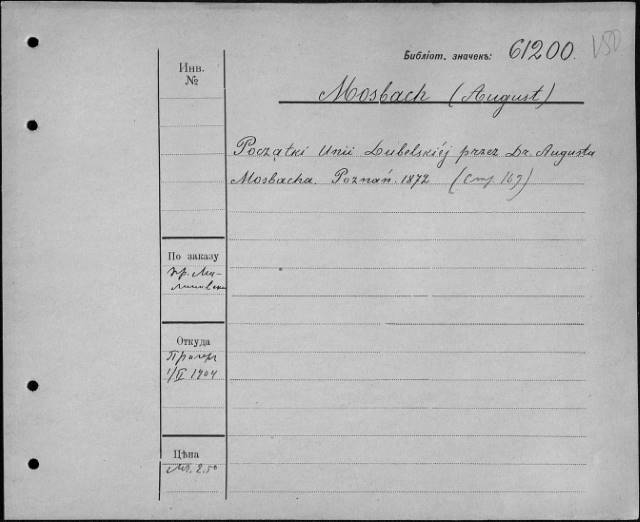 Библіот. значекъ: 61200.
Инв.
№
Mosbach (August)
Początki Unii Lubelskiéj przez Dr. Augusta
Mosbacha. Poznań. 1872 (Стр 167)
По заказу
пр.
Откуда
1/II 1904
Цѣна
2.50